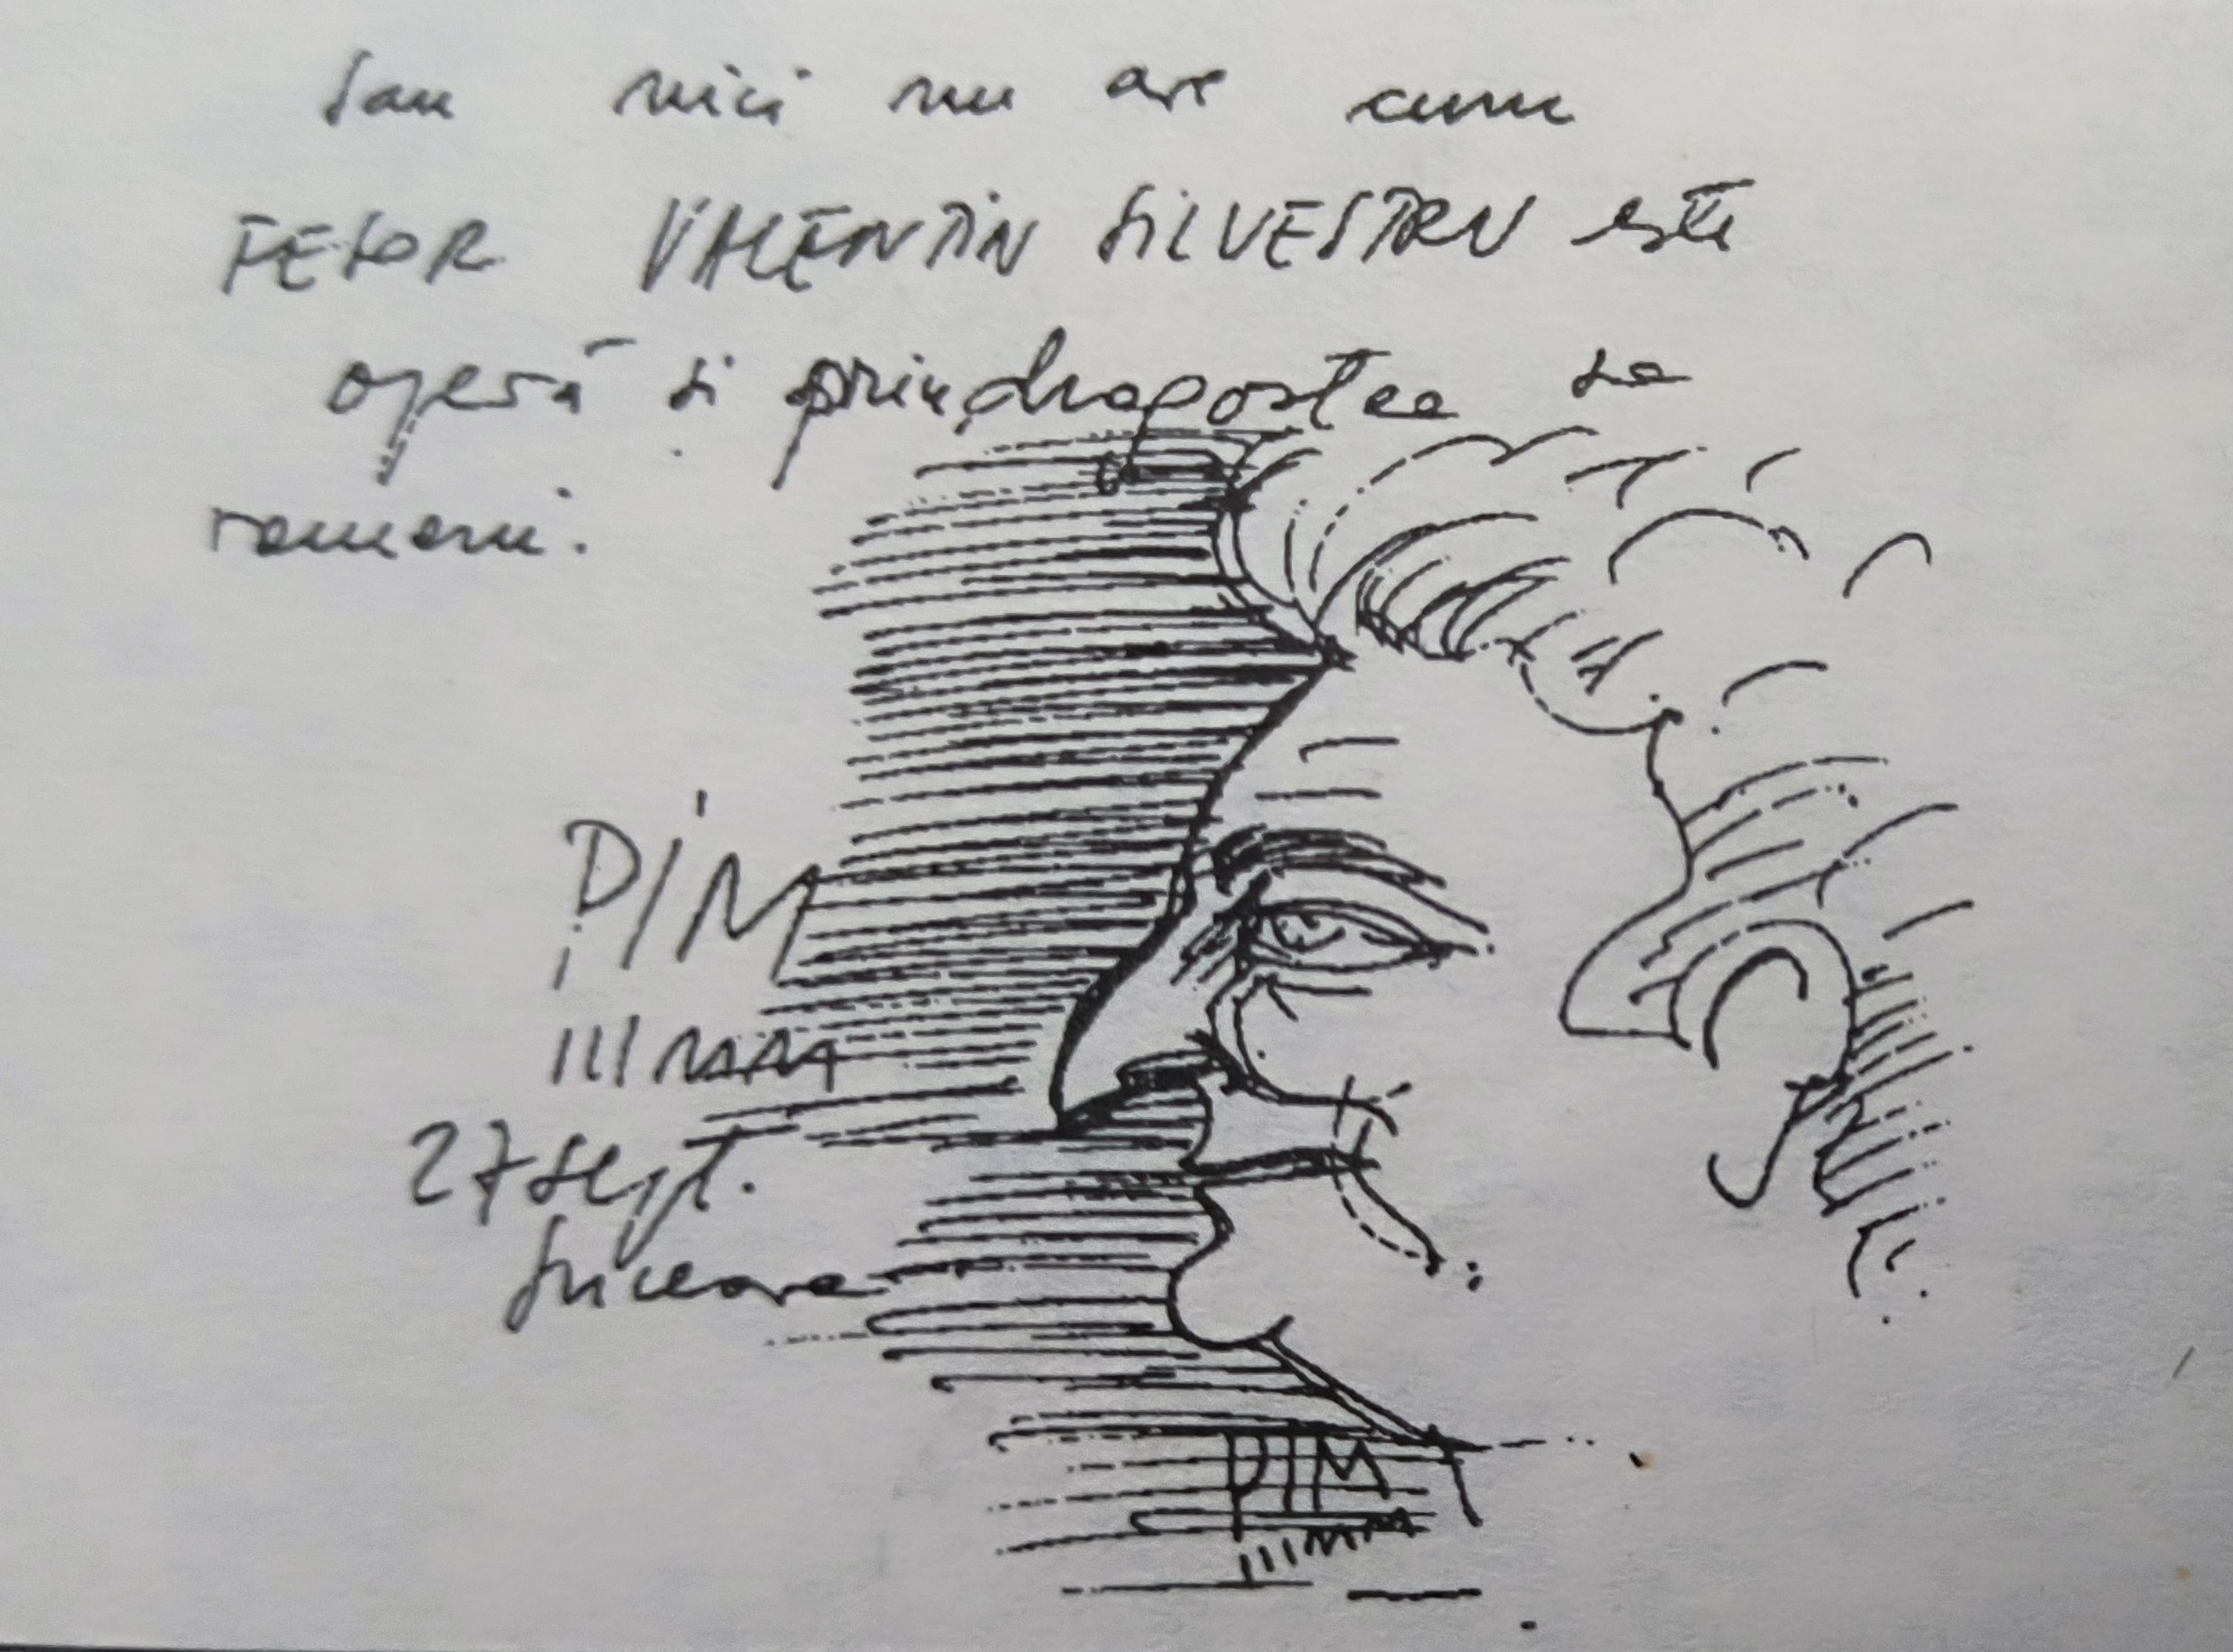 sau nici nu are cum
FESOR VALENTIN SILVESTRU este
operă și prin dragostea sa
rameni.
DIM
III MM
27 sept.
Suceava
DIM
III MM